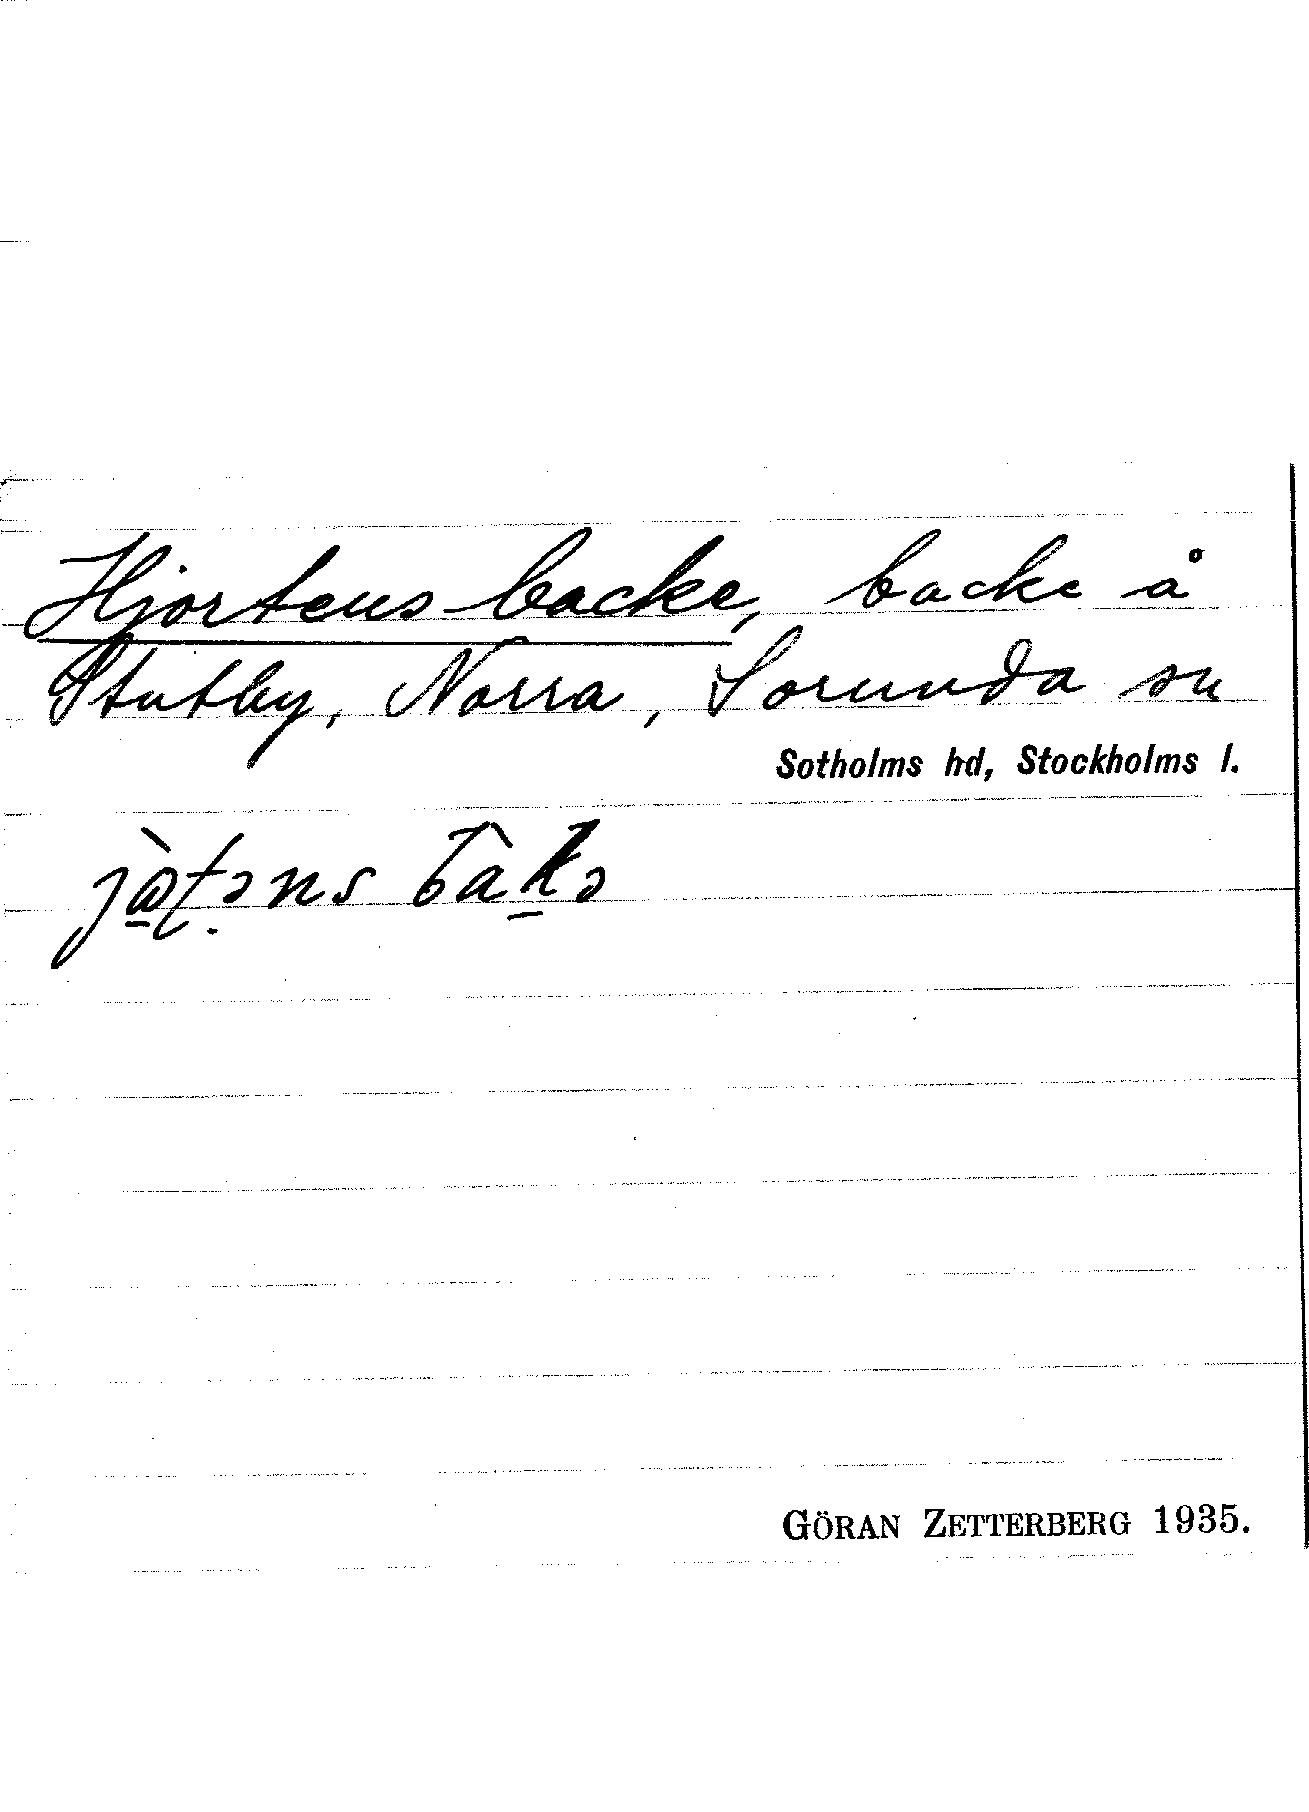 Hjortens backe, backe å
Stutby, Norra, Sorunda sn
Sotholms hd, Stockholms l.
jὰ̱ʈəns bâḵə
GÖRAN ZETTERBERG 1935.